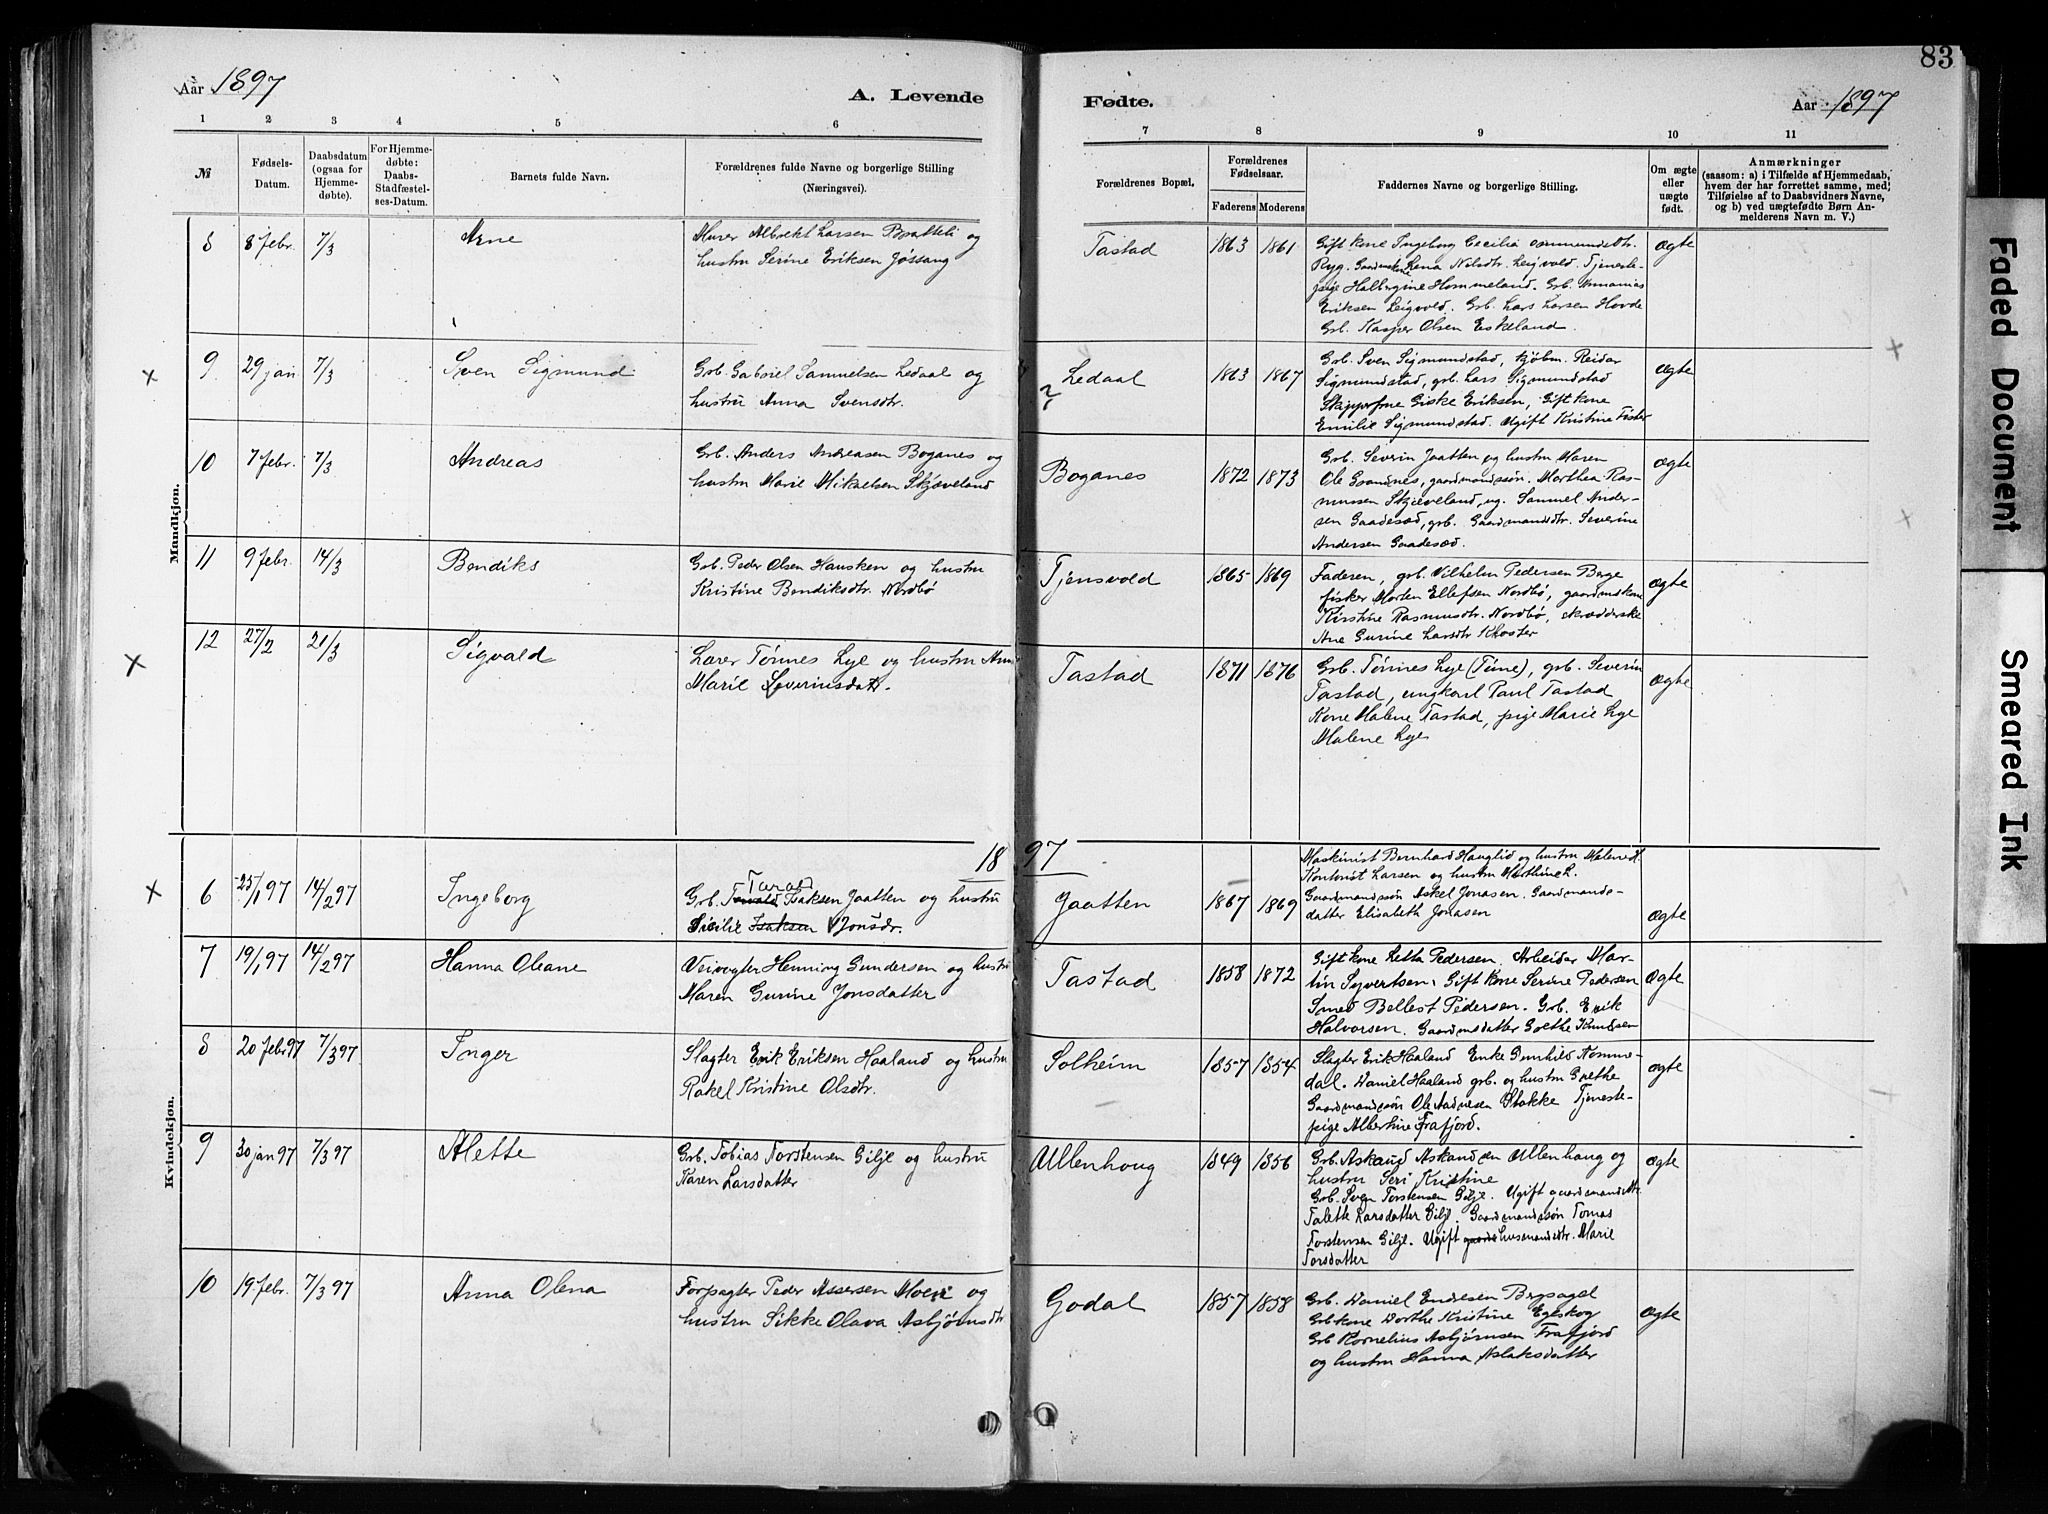 83
Aar 1897
A. Levende
Fødte.
Aar 1897
1 2 3 4 5 6
7 8 9 10 11
№
Fødsels-
Datum.
Daabsdatum
(ogsaa for
Hjemme-
døbte).
For Hjemme-
døbte:
Daabs-
Stadfæstel-
ses-Datum.
Barnets fulde Navn.
Forældrenes fulde Navne og borgerlige Stilling
(Næringsvei).
Forældrenes Bopæl.
Forældrenes
Fødselsaar.
Faderens Moderens
Faddernes Navne og borgerlige Stilling.
Om ægte
eller
uægte
født.
Anmærkninger
(saasom: a) i Tilfælde af Hjemmedaab,
hvem der har forrettet samme, med
Tilføielse af to Daabsvidners Navne,
og b) ved uægtefødte Børn An-
melderens Navn m. V.)
Mandkjøn.
8 8 febr. 7/3 Arne
Murer Albrekt Larsen Bratteli og
hustru Serine Eriksen Jøssang
Tastad 1863 1861
Gift kone Ingeborg Cecilia
Ryg. Lena Nilsdtr. Leigvold. Tjeneste-
pige Halbergine Hommeland. Grb. Annanias
Eriksen Leigvold. Grb. Lars Larsen Hovde
Grb. Kasper Olsen Eskeland.
ægte
9 29 jan 7/3 Sven Sigmund
Grb. Gabriel Samuelsen Ledaal og
hustru Anna Svensdtr.
Ledaal 1863 1867
Grb. Sven Sigmundstad, kjøbm. Reidar
Sigmundstad, grb. Lars Sigmundstad
Giske Eriksen, Gift kone
Emilie Sigmundstad. Ugift Kristine Fister
ægte
10 7 febr. 7/3 Andreas
Grb. Anders Andreasen Boganes og
hustru Marie Mikaelsen Skjæveland
Boganes 1872 1873
Grb. Severin Jaatten og hustru Maren
Ole Grandnes, gaardmandssøn. Marthea Ras-
mussen Skjæveland, ug. Samuel Ander-
sen Gaadesæd, grb. Gaardmandsdtr. Severine
Andersen Gaadesæd.
ægte
11 9 febr. 14/3 Bendiks
Grb. Peder Olsen Hausken og hustru
Kristine Bendiksdtr. Nordbø
Tjensvold 1865 1869
Faderen, grb. Vilhelm Pedersen Berge
fisker Morten Ellefsen Nordbø, gaardmdskone
Kirstine Rasmusdtr. Nordbø, skrædderske
Ane Gurine Larsdtr Kloster
ægte
12 27/2 21/3 Sigvald
Lærer Tønnes Lye og hustru Anna
Marie Severinsdatr.
Tastad 1871 1876
Grb. Tønnes Lye (Time), grb. Severin
Tastad, ungkarl Paul Tastad
Kone Malene Tastad, pige Marie Lye
Malene Lye
ægte
1897
Kvindekjøn.
6 25/1 97 14/2 97 Ingeborg
Grb. Isaksen Jaatten og hustru
Sicilie Isaksen Jonsdr.
Jaatten 1867 1869
Maskinist Bernhard Hauglid og hustru Malene H.
Kontorist Larsen og hustru Marthine L.
Gaardmandssøn Askel Jonasen. Gaardmands-
datter Elisabeth Jonasen
ægte
7 19/1 97 14/2 97 Hanna Oleane
Veivogter Henning Gundersen og hustru
Maren Gurine Jonsdatter
Tastad 1858 1872
Gift kone Letta Pedersen. Arbeider Mar-
tin Syvertsen. Gift kone Serine Pedersen
Smed Bellest Pedersen. Grb. Erik
Halvorsen. Gaardmdsdatter Grethe Knudsen
ægte
8 20 febr 97 7/3 97 Inger
Slagter Erik Eriksen Haaland og hustru
Rakel Kristine Olsdtr.
Solheim 1857 1854
Slagter Erik Haaland Enke Gunhild Nomme-
dal. Daniel Haaland grb. og hustru Grethe
Gaardmandssøn Ole Aadnesen Stokke Tjeneste-
pige Albertine Frafjord.
ægte
9 30 jan 97 7/3 97 Alette
Grb. Tobias Torstensen Gilje og hustru
Karen Larsdatter
Ullenhoug 1849 1856
Grb. Askaud Askaudsen Ullenhaug og
hustru Seri Kristine
Grb. Sven Torstensen Gilje. Ugift gaardmandsdtr.
Talette Larsdatter Gilje. Gaardmandssøn Tomas
Torstensen Gilje. Ugift husmandsdtr. Marie
Torsdatter
ægte
10 19 febr. 7/3 97 Anna Olena
Forpagter Peder Assersen Moen og
hustru Sikke Olava Asbjørnsdtr
Godal 1857 1858
Grb. Daniel Endresen
Grbkone Dorthe Kristine Egeskog
Grb Kornelius Asbjørnsen Frafjord
og hustru Hanna Aslaksdatter
ægte
Faded Document
Smeared Ink